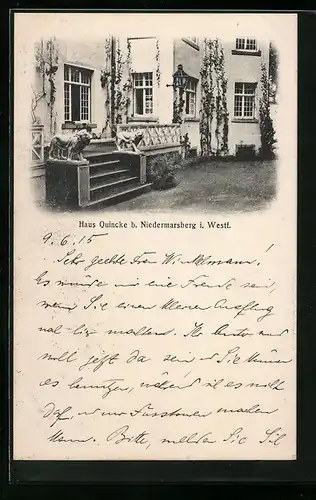 Haus Quincke b. Niedermarsberg i. Westf.
9.6.15
Sehr geehrte Frau Winkelmann!
Es würde mir eine Freude sein,
wenn Sie einen kleinen Ausflug
mal hier machten. Ihr Auto
soll jetzt da sein u. Sie können
es benutzen, während ich es nicht
darf, u. nur machen
kann. Bitte, melden Sie Sich